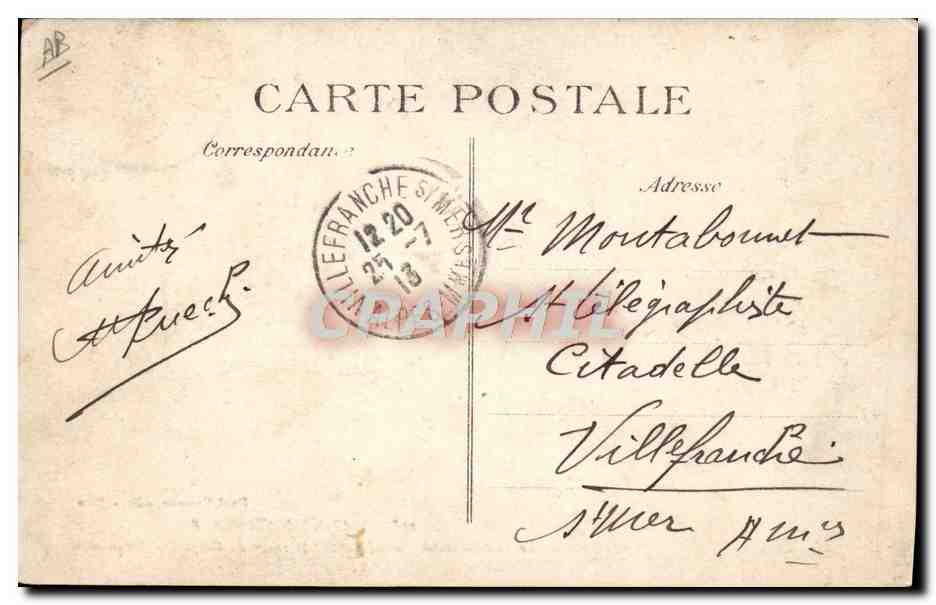 AB
CARTE POSTALE
Correspondance
Adresse
Amitié
VILLEFRANCHE S/MER
12 20
25 -7
13
ALPES MMES
CPAPHIL
Mr Montabonnet
Télégraphiste
Citadelle
Villefranche
s/mer Ames